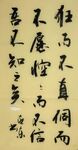 狂而不直侗而
不愿悾悾而不信
吾不知之矣